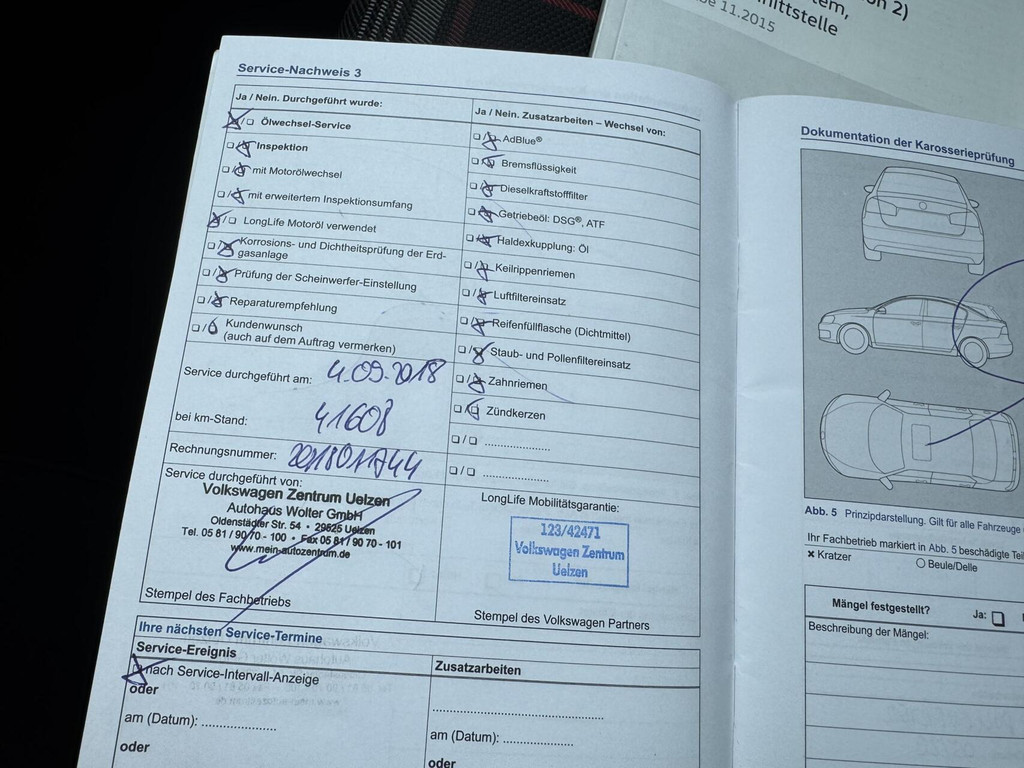 Service-Nachweis 3
Ja / Nein. Durchgeführt wurde:
Ölwechsel-Service
Inspektion
mit Motorölwechsel
mit erweitertem Inspektionsumfang
LongLife Motoröl verwendet
Korrosions- und Dichtheitsprüfung der Erd-
gasanlage
Prüfung der Scheinwerfer-Einstellung
Reparaturempfehlung
Kundenwunsch
(auch auf dem Auftrag vermerken)
Service durchgeführt am: 4.09.2018
bei km-Stand: 41608
Rechnungsnummer: 201801744
Service durchgeführt von:
Volkswagen Zentrum Uelzen
Autohaus Wolter GmbH
Oldenstädter Str. 54 • 29525 Uelzen
Tel. 05 81 / 90 70 - 100 • Fax 05 81 / 90 70 - 101
www.mein-autozentrum.de
Stempel des Fachbetriebs
Ja / Nein. Zusatzarbeiten – Wechsel von:
AdBlue®
Bremsflüssigkeit
Dieselkraftstofffilter
Getriebeöl: DSG®, ATF
Haldexkupplung: Öl
Keilrippenriemen
Luftfiltereinsatz
Reifenfüllflasche (Dichtmittel)
Staub- und Pollenfiltereinsatz
Zahnriemen
Zündkerzen
LongLife Mobilitätsgarantie:
123/42471
Volkswagen Zentrum
Uelzen
Stempel des Volkswagen Partners
Ihre nächsten Service-Termine
Service-Ereignis
nach Service-Intervall-Anzeige
oder
am (Datum):
oder
Zusatzarbeiten
am (Datum):
oder
on 2)
tem,
nittstelle
11.2015
Dokumentation der Karosserieprüfung
Abb. 5 Prinzipdarstellung. Gilt für alle Fahrzeuge
Ihr Fachbetrieb markiert in Abb. 5 beschädigte Teil
× Kratzer
○ Beule/Delle
Mängel festgestellt? Ja:
Beschreibung der Mängel: